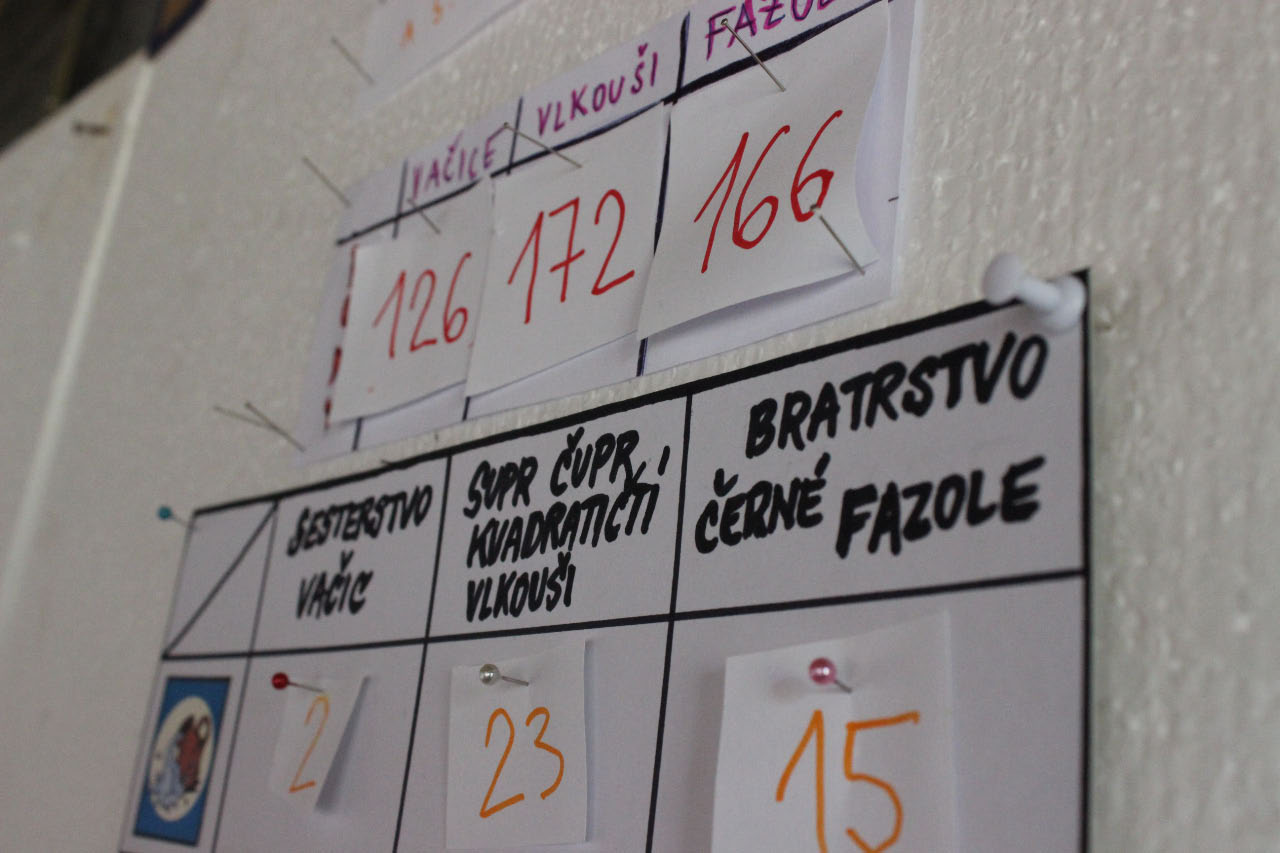 VAČICE VLKOUŠI FAZOLE
126 172 166
SESTERSTVO
VAČIC
SUPR ČUPR,
KVADRATIČTÍ
VLKOUŠI
BRATRSTVO
ČERNÉ FAZOLE
2 23 15